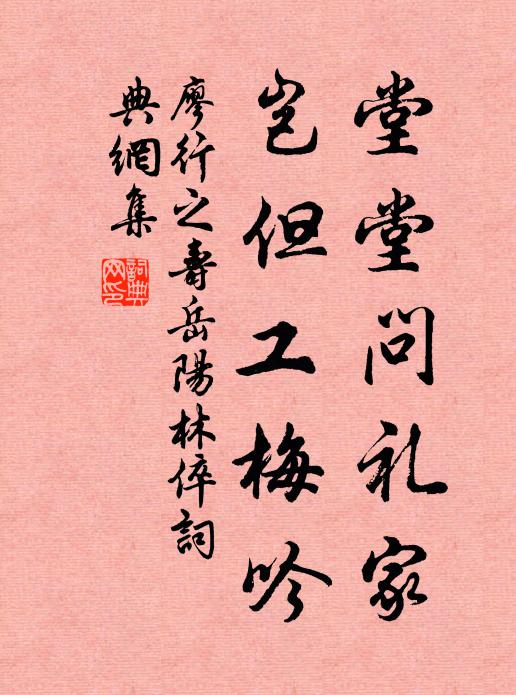 堂堂问礼家
岂但工梅吟
廖行之寿岳陽林倅詞
典網集
詞典網印